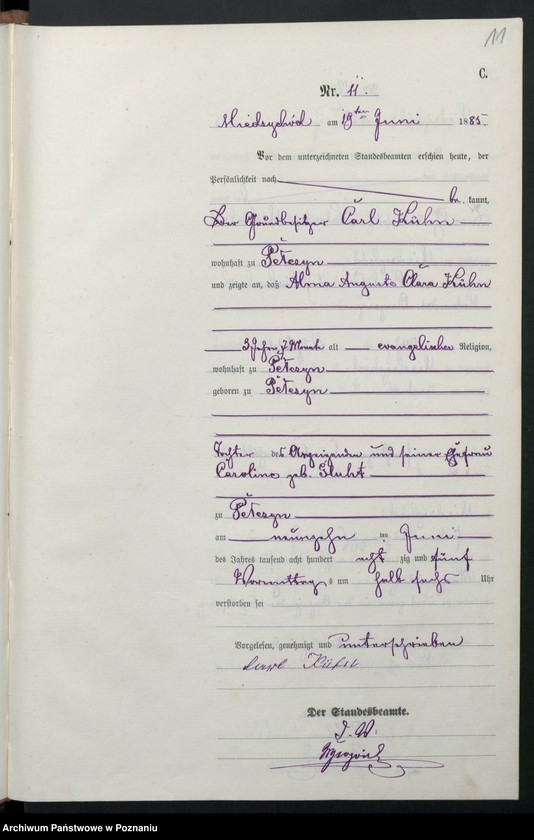 11
C.
Nr. 11.
Miedzychód am 19ten Juni 1885.
Vor dem unterzeichneten Standesbeamten erschien heute, der
Persönlichkeit nach
be kannt,
Der Grundbesitzer Carl Kühn
wohnhaft zu
und zeigte an, daß Alma Auguste Clara Kühn
3 Jahre, 7 Monate alt evangelischer Religion,
wohnhaft zu
geboren zu
Tochter des Anzeigenden und seiner Ehefrau
Caroline geb.
zu
am neunzehn ten Juni
des Jahres tausend acht hundert acht zig und fünf
Vormittag s um halb sechs Uhr
verstorben sei
Vorgelesen, genehmigt und unterschrieben
Carl Kühn
Der Standesbeamte.
J. V.
Archiwum Państwowe w Poznaniu